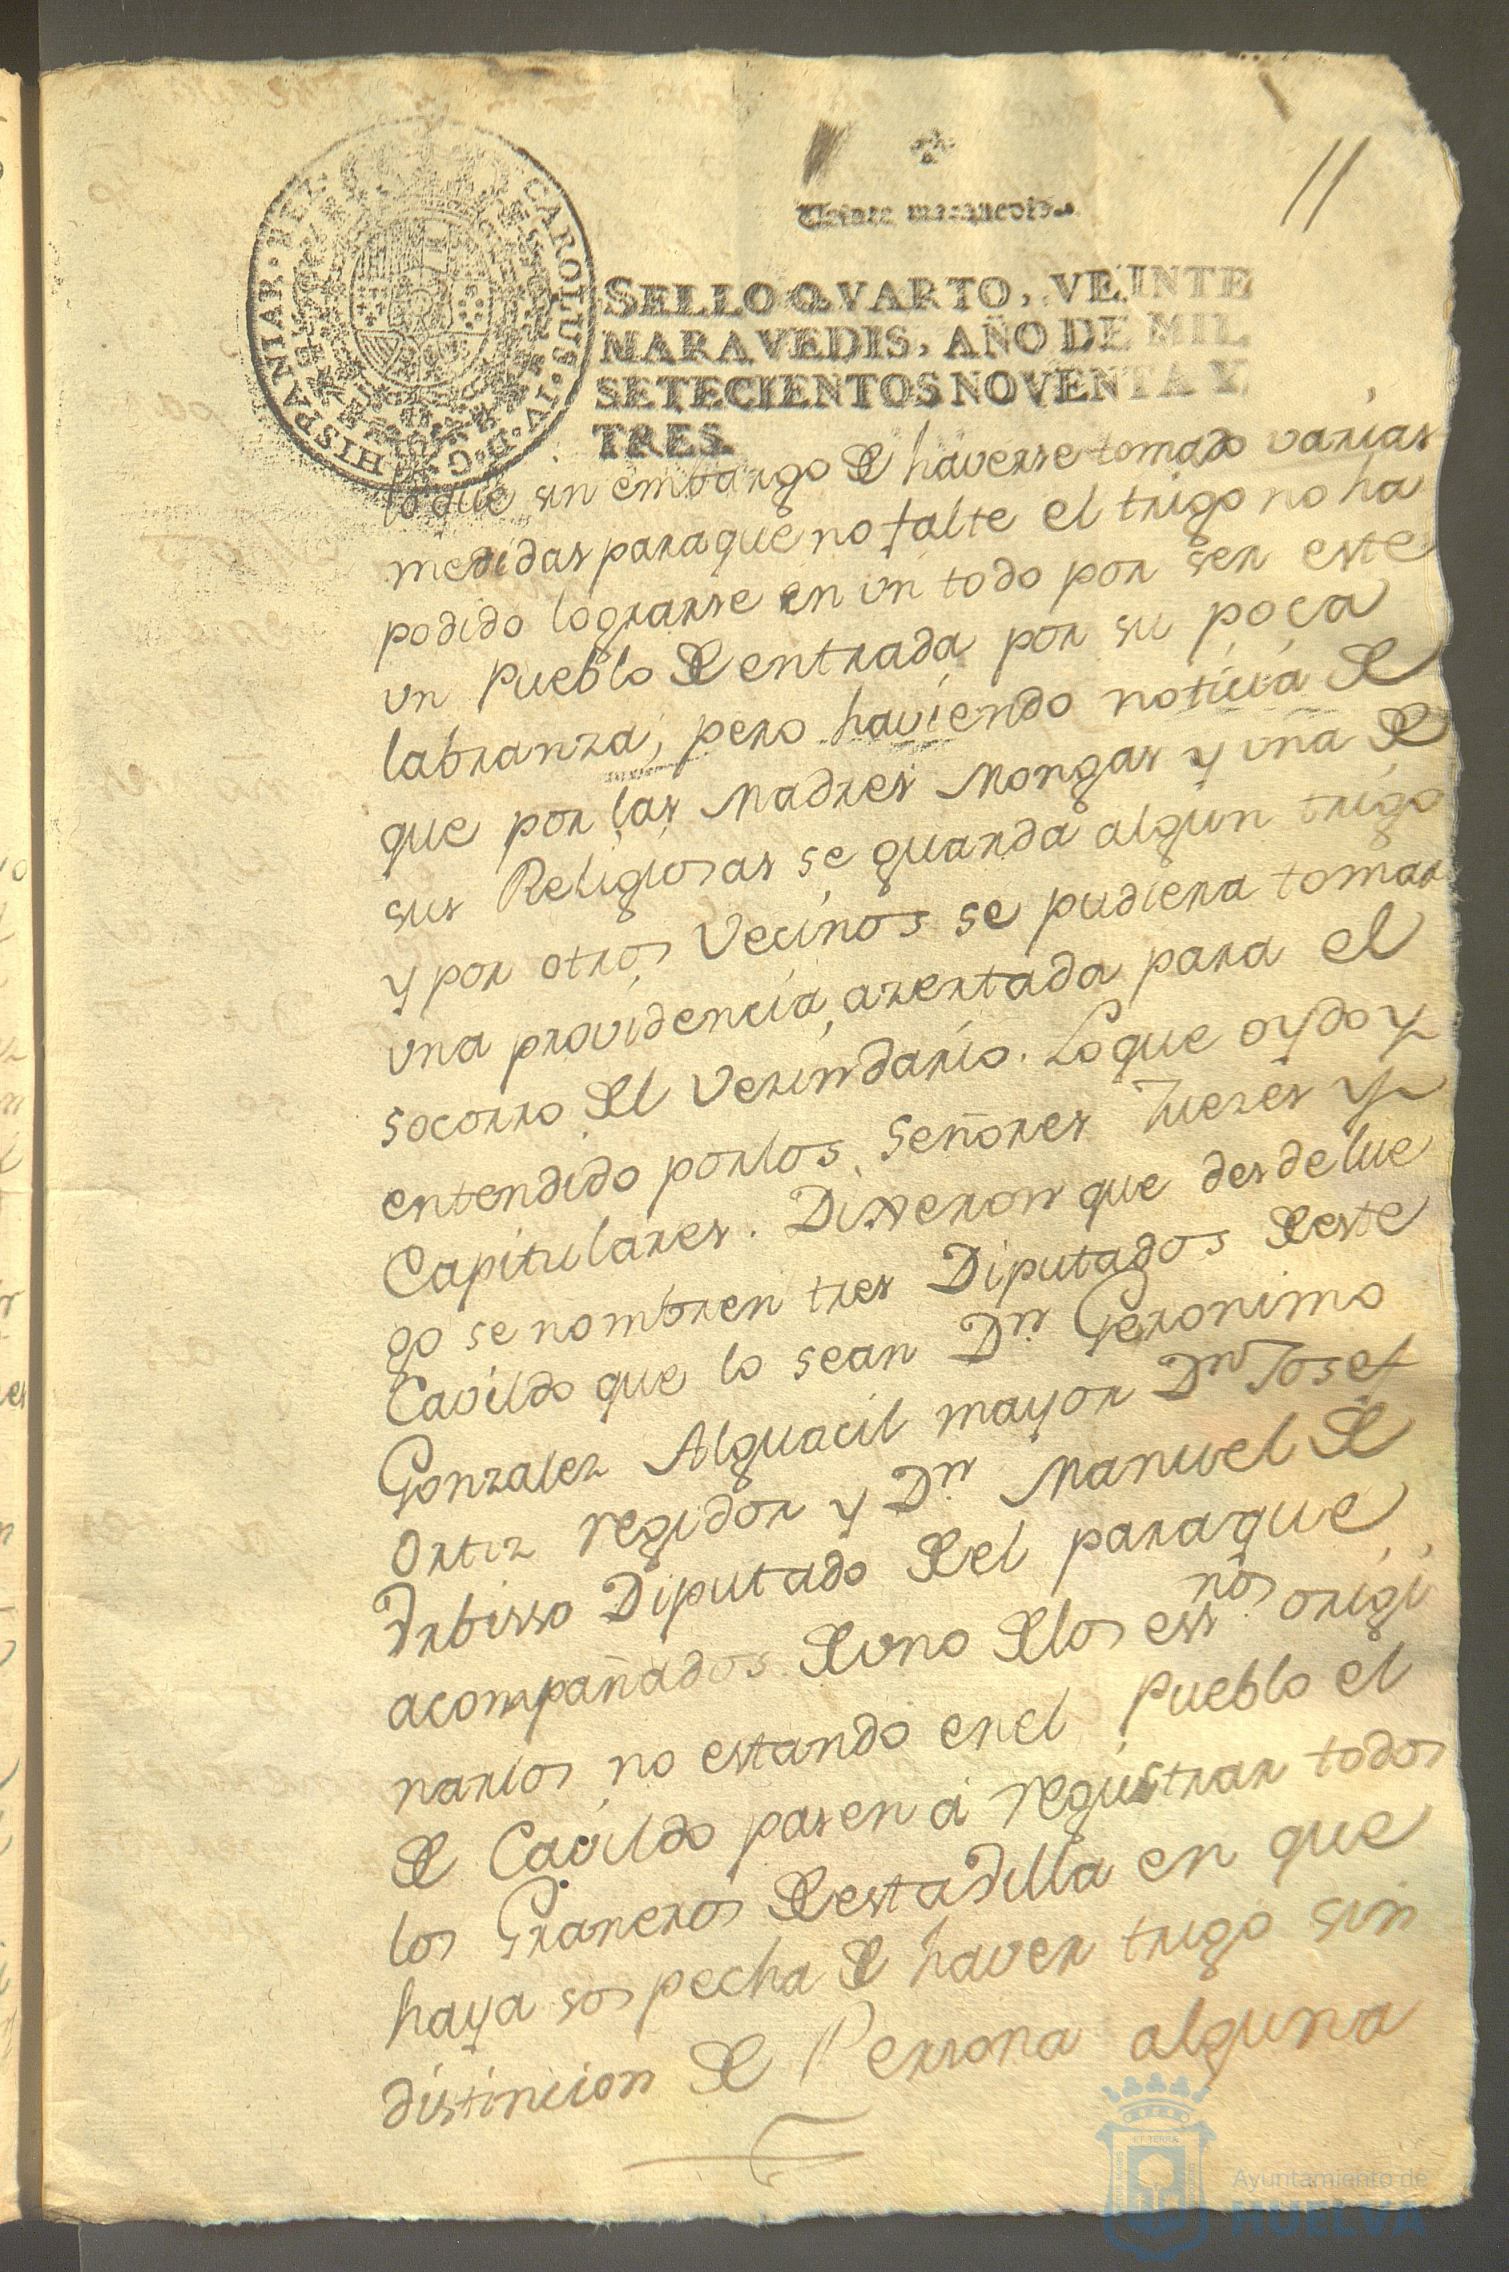 11
Veinte maravedis.
HISPANIAR·REX CAROLUS·IV·D·G·
SELLO QVARTO, VEINTE
MARAVEDIS, AÑO DE MIL
SETECIENTOS NOVENTA Y
TRES.
lo que sin embargo de haverse tomado varias
medidas paraque no falte el trigo no ha
podido lograrse en un todo por ser este
un Pueblo de entrada por su poca
labranza; pero haviendo noticia de
que por las Madres Mongas y una de
sus Religiosas se guarda algun trigo
y por otros Vecinos se pudiera tomar
una providencia azertada para el
socorro del Vezindario. Loque oydo y
entendido porlos Señores Juezes y
Capitulares. Dixeron que desdelue
go se nombren tres Diputados deeste
Cavildo que lo sean Dn. Geronimo
Gonzalez Alguacil mayor Dn Josef
Ortiz regidor y Dn. Manuel de
Yrbisso Diputado deel paraque
acompañados deuno delos essnos. origi
narios no estando enel Pueblo el
de Cavildo pasen á registrar todos
los Graneros deestadilla en que
haya sospecha de haver trigo sin
distincion de Persona alguna
Ayuntamiento de
HUELVA